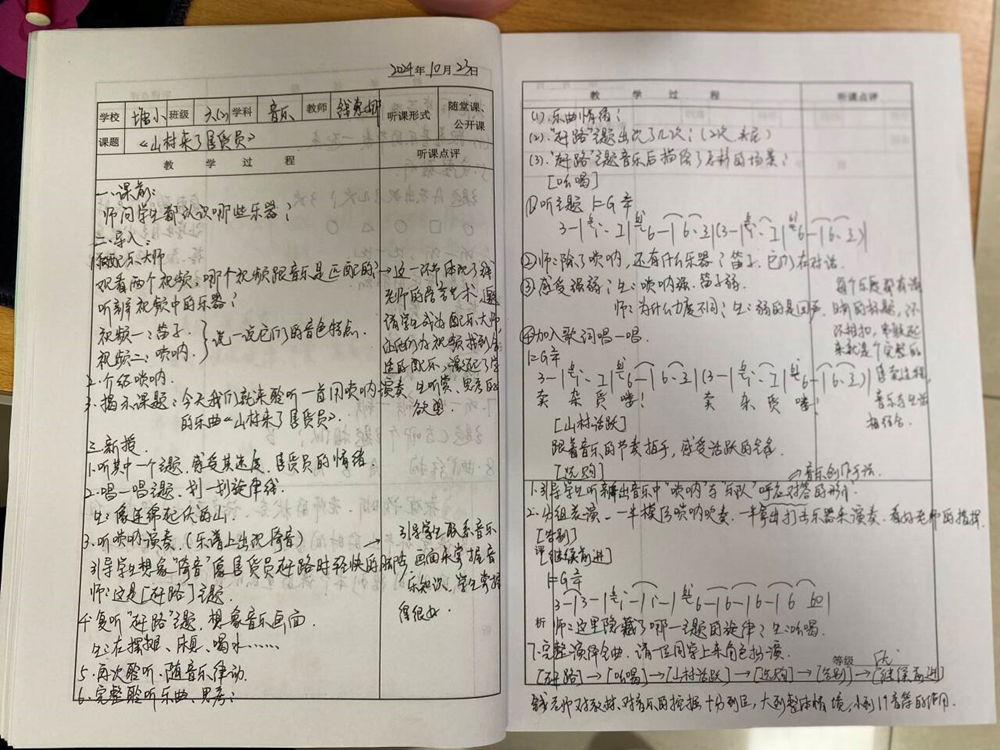 2024年10月23日
学校 塘小 班级 六(2) 学科 音乐 教师 钱 娜 听课形式 随堂课、公开课
课题 《山村来了售货员》
教 学 过 程 听课点评
一.课前:
师问学生都认识哪些乐器?
二.导入:
1.配乐大师
观看两个视频,哪个视频跟音乐是匹配的?
听辨视频中的乐器?
视频一:笛子.
视频二:唢呐.
说一说它们的音色特点.
→这一环节体现了钱
老师的语言艺术,邀
请学生成为配乐大师,
让他们为视频找到合
适的配乐,激起了学
生听赏、思考的
欲望.
2.介绍唢呐.
3.揭示课题:今天我们就来聆听一首用唢呐演奏
的乐曲《山村来了售货员》.
三.新授.
1.听其中一个主题,感受其速度、售货员的情绪
2.唱一唱主题、划一划旋律线.
生:像连绵起伏的山.
3.听唢呐演奏.(乐谱上出现倚音)
引导学生想象"倚音"像售货员赶路时轻快的脚步
师:这是[赶路]主题.
→引导学生联系音乐
画面来掌握音
乐知识,学生掌握
得很好.
4.复听"赶路"主题,想象音乐画面.
生:在摆摊、休息、喝水……
5.再次聆听,随音乐律动.
6.完整聆听乐曲,思考:
教 学 过 程 听课点评
(1).乐曲情绪?
(2)."赶路"主题出现了几次?(2次 首尾)
(3)."赶路"主题音乐后描绘了怎样的场景?
[吆喝]
①听主题 1=G
②师:除了唢呐,还有什么乐器?笛子,它们在对话.
③感受强弱?生:唢呐强.笛子弱.
师:为什么力度不同?生:弱的是回声.
④加入歌词唱一唱.
1=G
卖 杂 货 喽! 卖 杂 货 喽!
每个乐段都有清
晰的标题,环
环相扣,串联起
来就是个完整的
售卖过程,
音乐与生活
相结合.
[山村活跃]
跟着音乐的节奏拍手,感受活跃的气氛
[选购]
→音乐创作手法
1.引导学生听辨出音乐中"唢呐"与"乐队"呼应对答的形式.
2.分组表演.一半模仿唢呐吹奏.一半拿出打击乐器来演奏.看好老师的指挥.
[告别]
[继续前进]
1=G
师:这里隐藏了哪一主题的旋律?生:吆喝.
7.完整演绎全曲,请一位同学上来角色扮演.
等级 优
[赶路]→[吆喝]→[山村活跃]→[选购]→[告别]→[继续前进]
钱老师对教材、对音乐的挖掘十分到位,大到整体情境,小到倚音等的使用.